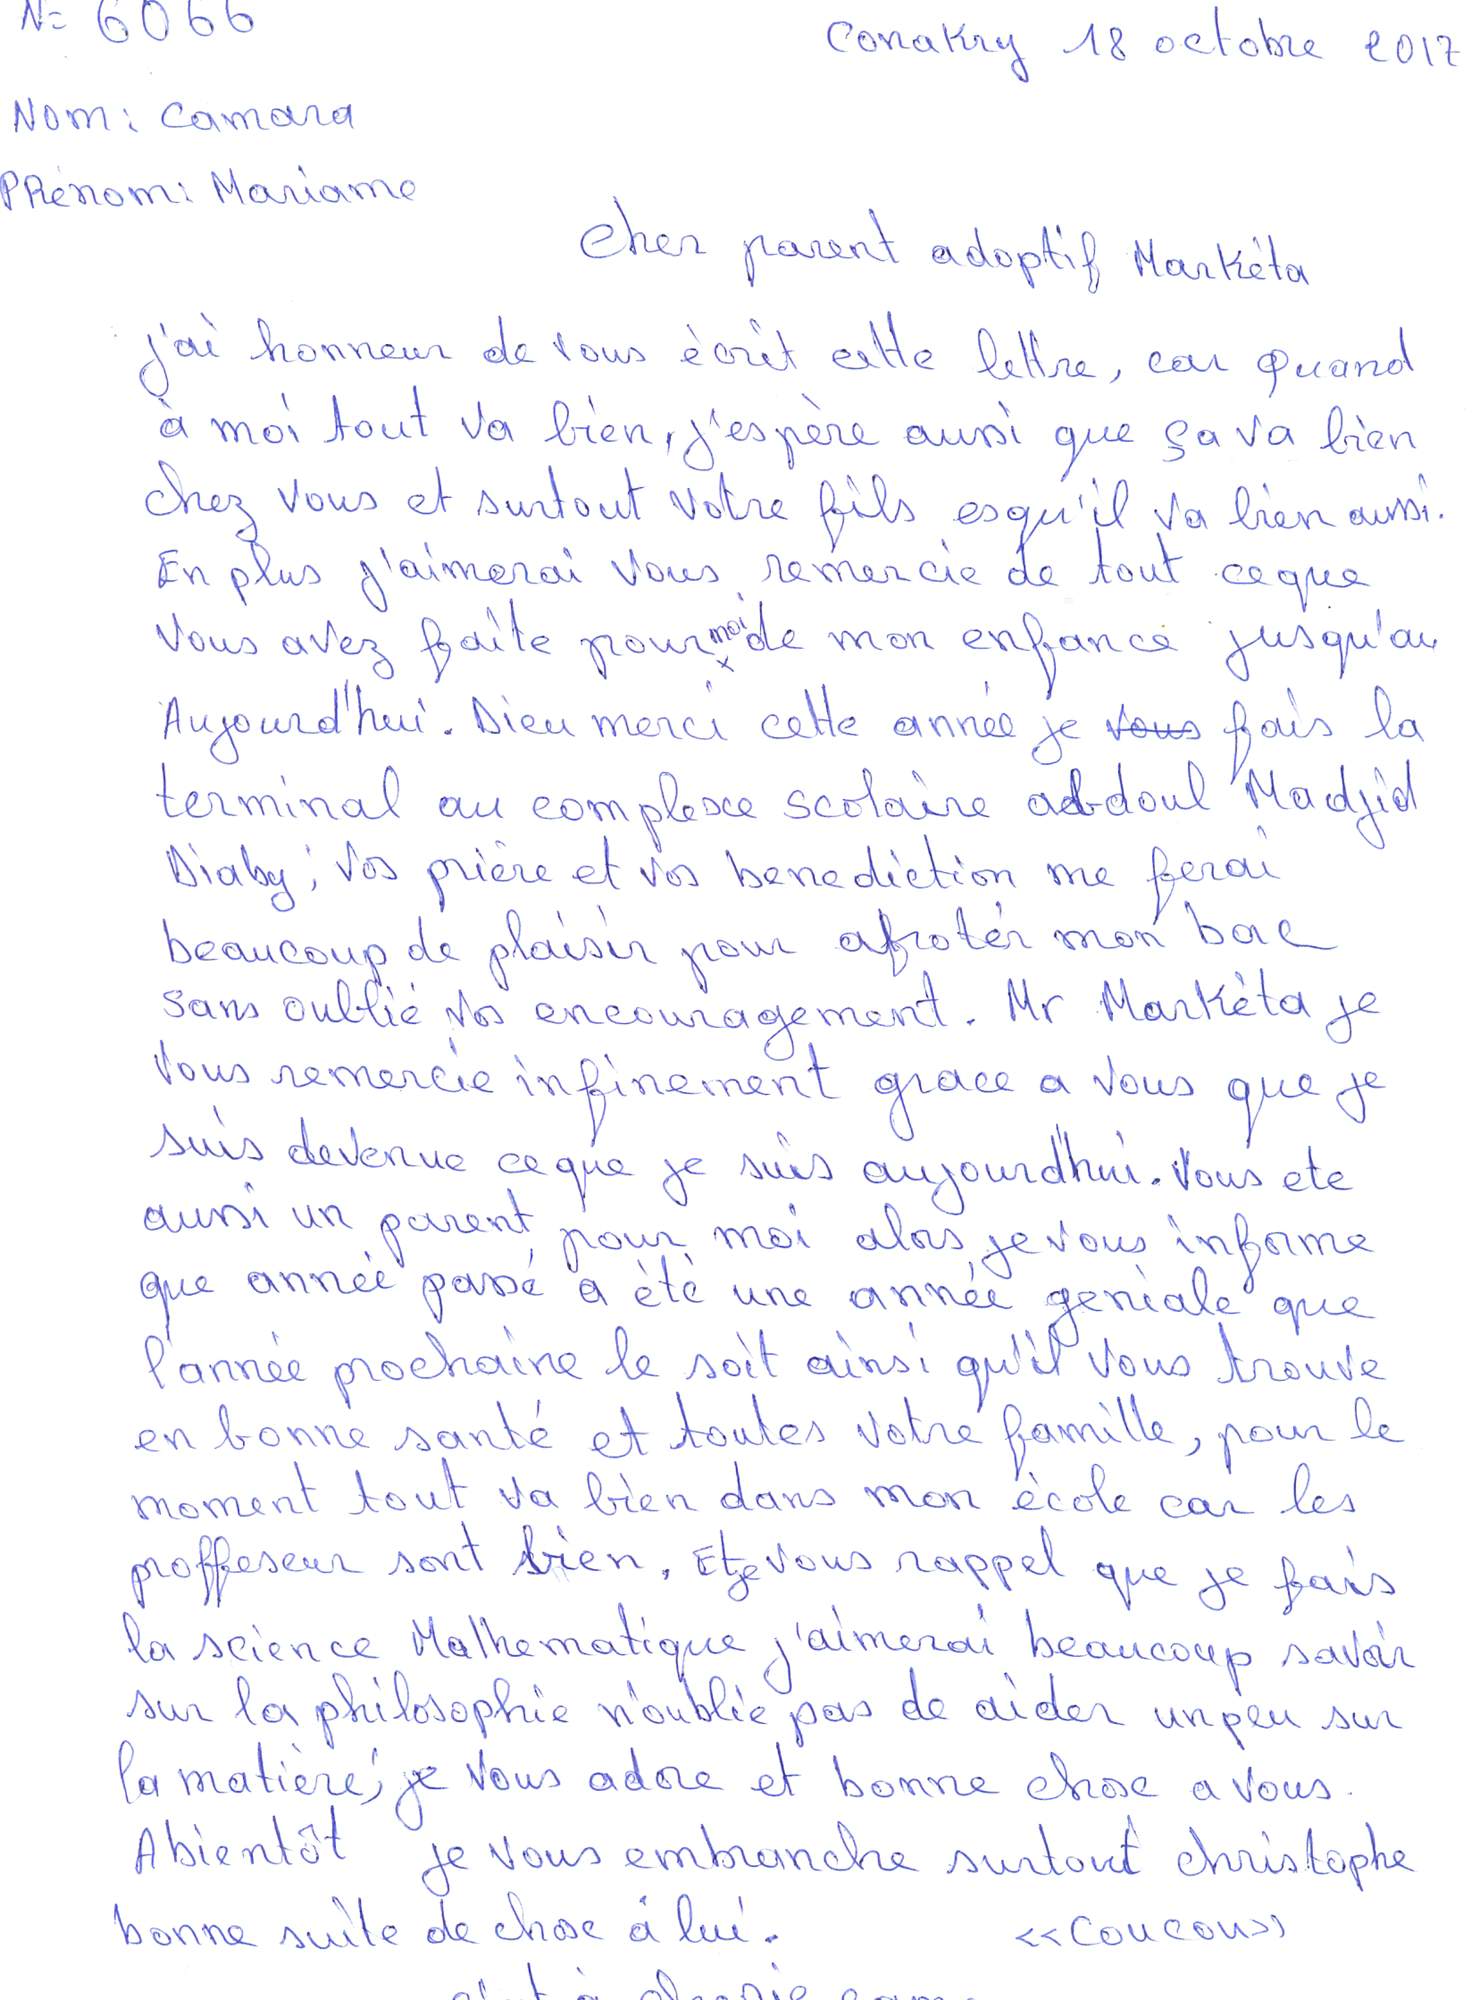 N= 6066
Conakry 18 octobre 2017
Nom: Camara
PRénom: Mariame
Cher parent adoptif Markéta
j'ai honneur de vous écrit cette lettre, car Quand
à moi tout va bien, j'espère aussi que ça va bien
chez vous et surtout votre fils esqu'il va bien aussi.
En plus j'aimerai vous remercie de tout ceque
vous avez faite pour moi de mon enfance jusqu'au
Aujourd'hui. Dieu merci cette année je vous fais la
terminal au complexe scolaire abdoul Madjid
Diaby; vos prière et vos benediction me ferai
beaucoup de plaisir pour afroter mon bac
sans oublié vos encouragement. Mr Markéta je
vous remercie infinement grace a vous que je
suis devenue ceque je suis aujourd'hui. Vous ete
aussi un parent pour moi alors je vous informe
que année passé a été une année geniale que
l'année prochaine le soit ainsi qu'il vous trouve
en bonne santé et toutes votre famille, pour le
moment tout va bien dans mon école car les
proffeseur sont bien. Et je vous rappel que je fais
la science Mathematique j'aimerai beaucoup savoir
sur la philosophie n'oublie pas de aider unpeu sur
la matière; je vous adore et bonne chose a vous.
Abientôt je vous embranche surtout christophe
bonne suite de chose à lui. <<Coucou>>